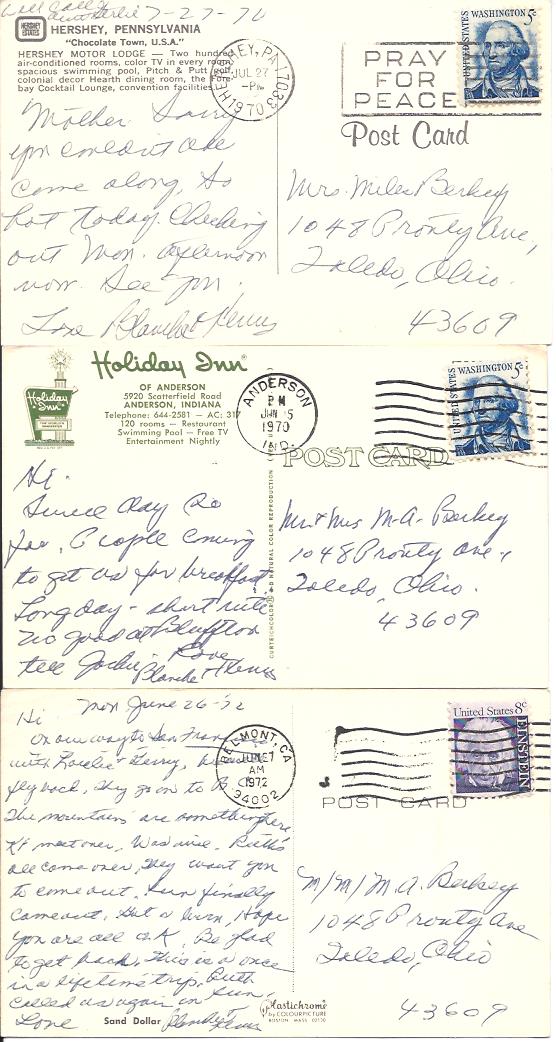 7-27-70
HERSHEY ESTATES
HERSHEY, PENNSYLVANIA
"Chocolate Town, U.S.A."
HERSHEY MOTOR LODGE — Two hundred
air-conditioned rooms, color TV in every room
spacious swimming pool, Pitch & Putt
colonial decor Hearth dining room, the
bay Cocktail Lounge, convention facilities.
HERSHEY, PA 17033
JUL 27
-PM
1970
PRAY
FOR
PEACE
UNITED STATES WASHINGTON 5c
Post Card
Mother Sorry
you couldn't
come along, So
hot today. Checking
out Mon. afternoon
now. See you.
Love Blanche &
Mrs. Miles Berkey
1048 Prouty Ave,
Toledo, Ohio.
43609
Holiday Inn
Holiday Inn
OF ANDERSON
5920 Scatterfield Road
ANDERSON, INDIANA
Telephone: 644-2581 — AC: 317
120 rooms — Restaurant
Swimming Pool — Free TV
Entertainment Nightly
ANDERSON
PM
1970
IND.
UNITED STATES WASHINGTON 5c
POST CARD
CURTEICHCOLOR NATURAL COLOR REPRODUCTION
Hi.
day so
far. People coming
to get us for breakfast.
Long day - short nite
no good at Bluffton
tell Jackie. Love
Blanche &
Mr + Mrs M-A- Berkey
1048 Prouty Ave.,
Toledo, Ohio.
43609
Mon June 26-'72
Hi
On our way to San Fran
with &
fly back. They go on to
The mountains are something here
meet over. Was nice. Ruth's
all come over, they want you
to come out. Sun finally
came out. Hope
you are all O.K. Be glad
to get back. This is a once
in a lifetime trip. Ruth
called us again in
Love
Blanche &
BELMONT, CA
AM
1972
94002
United States 8c
EINSTEIN
POST CARD
M/M/ M.A. Berkey
1048 Prouty Ave
Toledo, Ohio
43609
Sand Dollar
Plastichrome
by COLOURPICTURE
BOSTON MASS 02130